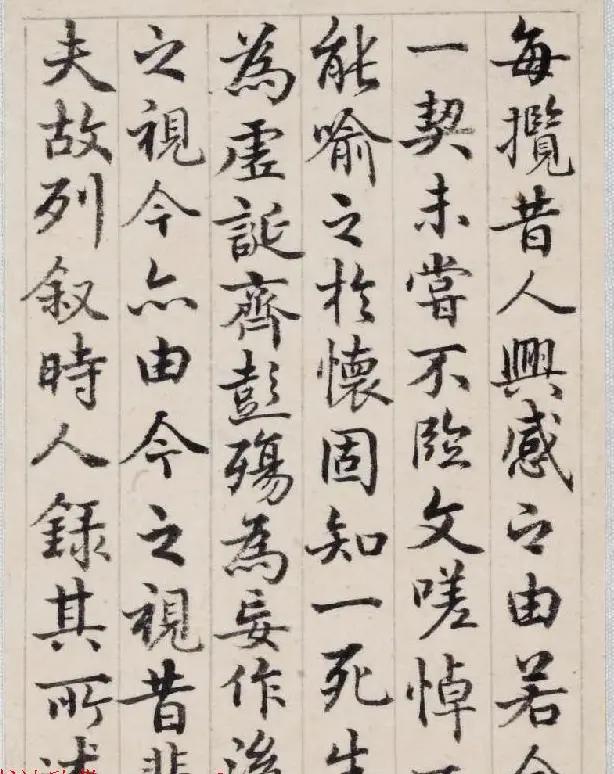 每攬昔人興感之由若
一契未嘗不臨文嗟悼
能喻之於懷固知一死生
為虛誕齊彭殤為妄作後
之視今亦由今之視昔悲
夫故列叙時人錄其所述